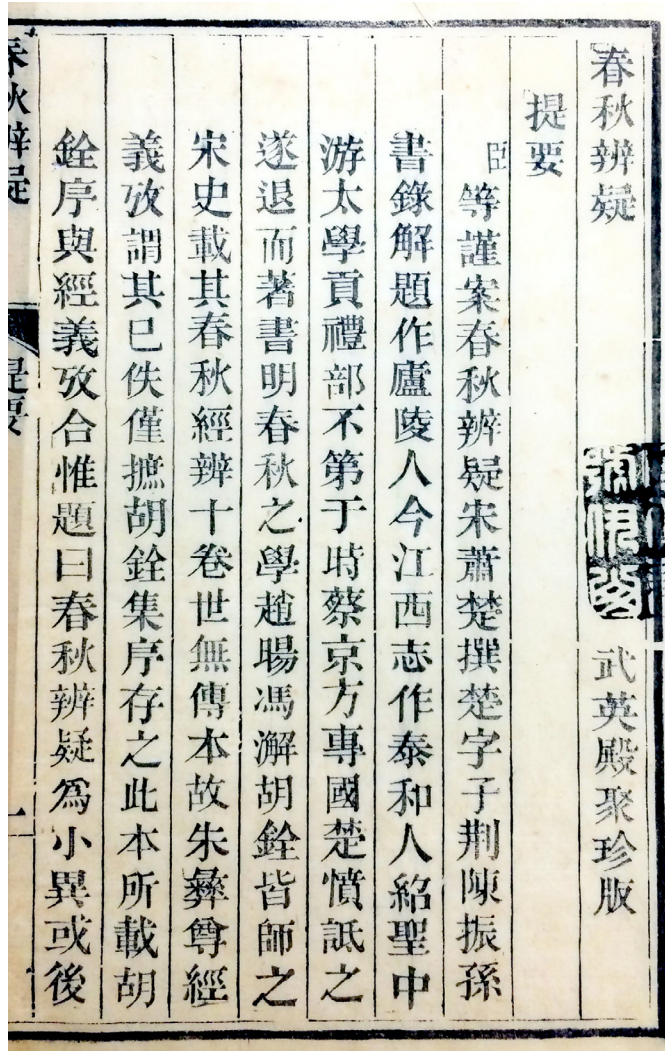 春秋辨疑 武英殿聚珍版
提要
臣等謹案春秋辨疑宋蕭楚撰楚字子荆陳振孫
書錄解題作廬陵人今江西志作泰和人紹聖中
游太學貢禮部不第于時蔡京方專國楚憤詆之
遂退而著書明春秋之學趙暘馮澥胡銓皆師之
宋史載其春秋經辨十卷世無傳本故朱彝尊經
義攷謂其已佚僅摭胡銓集序存之此本所載胡
銓序與經義攷合惟題曰春秋辨疑爲小異或後
春秋辨疑 提要 一